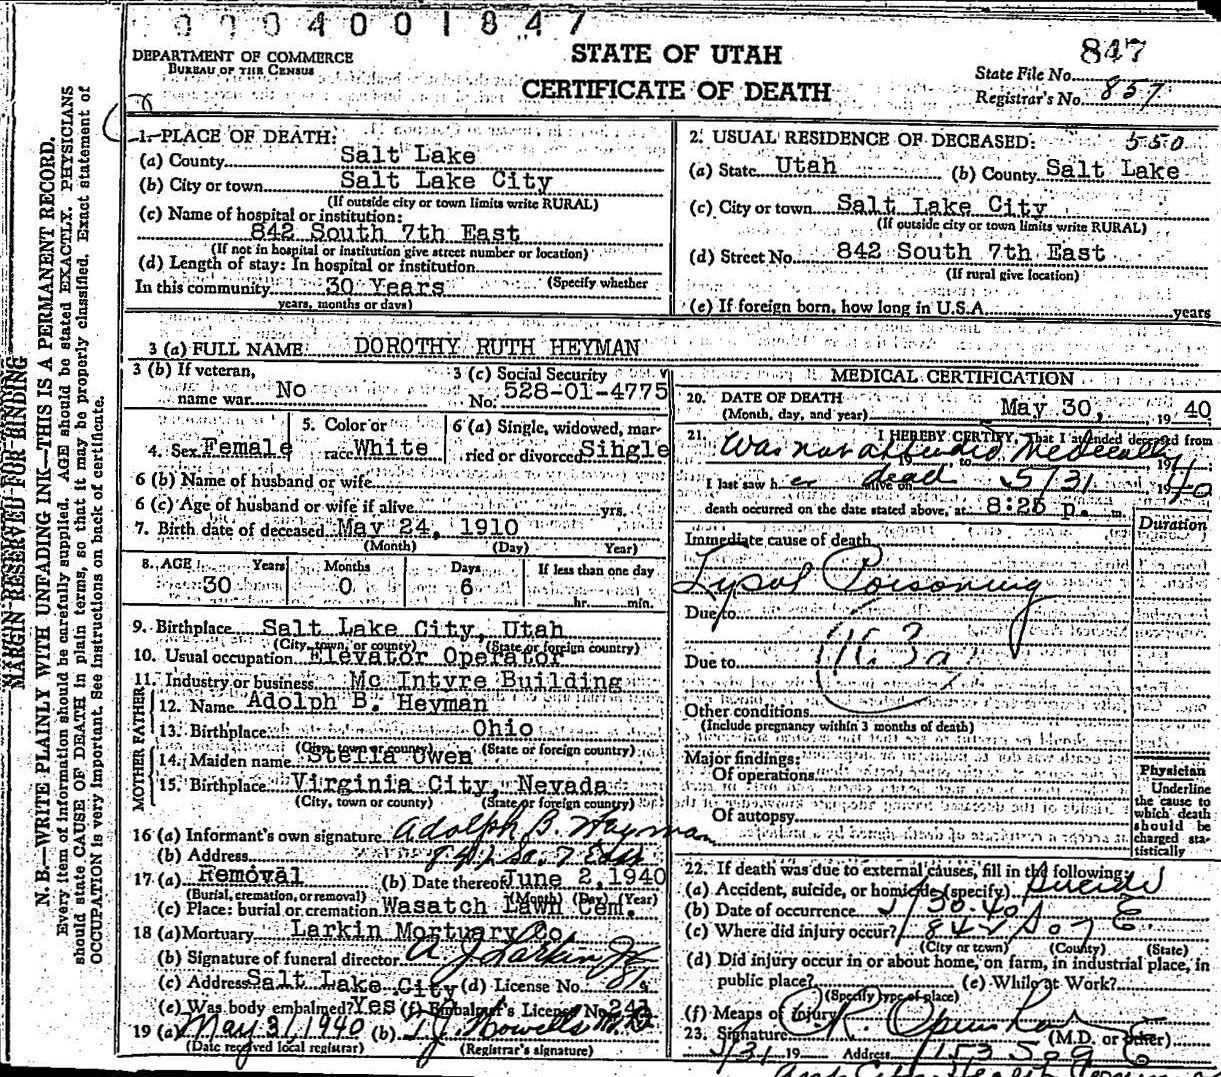 0004001847
DEPARTMENT OF COMMERCE
BUREAU OF THE CENSUS
STATE OF UTAH
CERTIFICATE OF DEATH
847
State File No.
Registrar's No. 857
MARGIN RESERVED FOR BINDING
N. B.—WRITE PLAINLY WITH UNFADING INK—THIS IS A PERMANENT RECORD.
Every item of information should be carefully supplied. AGE should be stated EXACTLY. PHYSICIANS
should state CAUSE OF DEATH in plain terms, so that it may be properly classified. Exact statement of
OCCUPATION is very important. See instructions on back of certificate.
1. PLACE OF DEATH:
(a) County Salt Lake
(b) City or town Salt Lake City
(If outside city or town limits write RURAL)
(c) Name of hospital or institution:
842 South 7th East
(If not in hospital or institution give street number or location)
(d) Length of stay: In hospital or institution
In this community 30 Years (Specify whether
years, months or days)
2. USUAL RESIDENCE OF DECEASED: 550
(a) State Utah (b) County Salt Lake
(c) City or town Salt Lake City
(If outside city or town limits write RURAL)
(d) Street No. 842 South 7th East
(If rural give location)
(e) If foreign born, how long in U.S.A. years
3 (a) FULL NAME DOROTHY RUTH HEYMAN
3 (b) If veteran, name war No
3 (c) Social Security No. 528-01-4775
4. Sex Female
5. Color or race White
6 (a) Single, widowed, married or divorced Single
6 (b) Name of husband or wife
6 (c) Age of husband or wife if alive yrs.
7. Birth date of deceased May 24, 1910
(Month) (Day) Year)
8. AGE Years Months Days If less than one day
30 0 6 hr. min.
9. Birthplace Salt Lake City, Utah
(City, town, or county) (State or foreign country)
10. Usual occupation Elevator Operator
11. Industry or business Mc Intyre Building
FATHER
12. Name Adolph B. Heyman
13. Birthplace Ohio
(City, town or county) (State or foreign country)
MOTHER
14. Maiden name Stella Owen
15. Birthplace Virginia City, Nevada
(City, town or county) (State or foreign country)
16 (a) Informant's own signature Adolph B. Hayman
(b) Address So. 7 East
17 (a) Removal (b) Date thereof June 2, 1940
(Burial, cremation, or removal) (Month) (Day) (Year)
(c) Place: burial or cremation Wasatch Lawn Cem.
18 (a) Mortuary Larkin Mortuary Co.
(b) Signature of funeral director A J Larkin Jr
(c) Address Salt Lake City (d) License No.
(e) Was body embalmed? Yes (f) Embalmer's License No. 241
19 (a) May 31, 1940 (b) T. J. Howells M.D.
(Date received local registrar) (Registrar's signature)
MEDICAL CERTIFICATION
20. DATE OF DEATH
(Month, day, and year) May 30, 1940
21. I HEREBY CERTIFY, That I attended deceased from
Was not attended Medically
19 to 19
I last saw her dead alive on 5/31 1940
death occurred on the date stated above, at 8:25 p. m.
Duration
Immediate cause of death
Lysol Poisoning
Due to
Due to 163a
Other conditions
(Include pregnancy within 3 months of death)
Major findings:
Of operations
Of autopsy
Physician
Underline
the cause to
which death
should be
charged sta-
tistically
22. If death was due to external causes, fill in the following:
(a) Accident, suicide, or homicide (specify) Suicide
(b) Date of occurrence 5/30-40
(c) Where did injury occur? 842 So 7 E.
(City or town) (County) (State)
(d) Did injury occur in or about home, on farm, in industrial place, in
public place? (e) While at Work?
(Specify type of place)
(f) Means of injury
23. Signature (M.D. or other)
5/31 19 Address